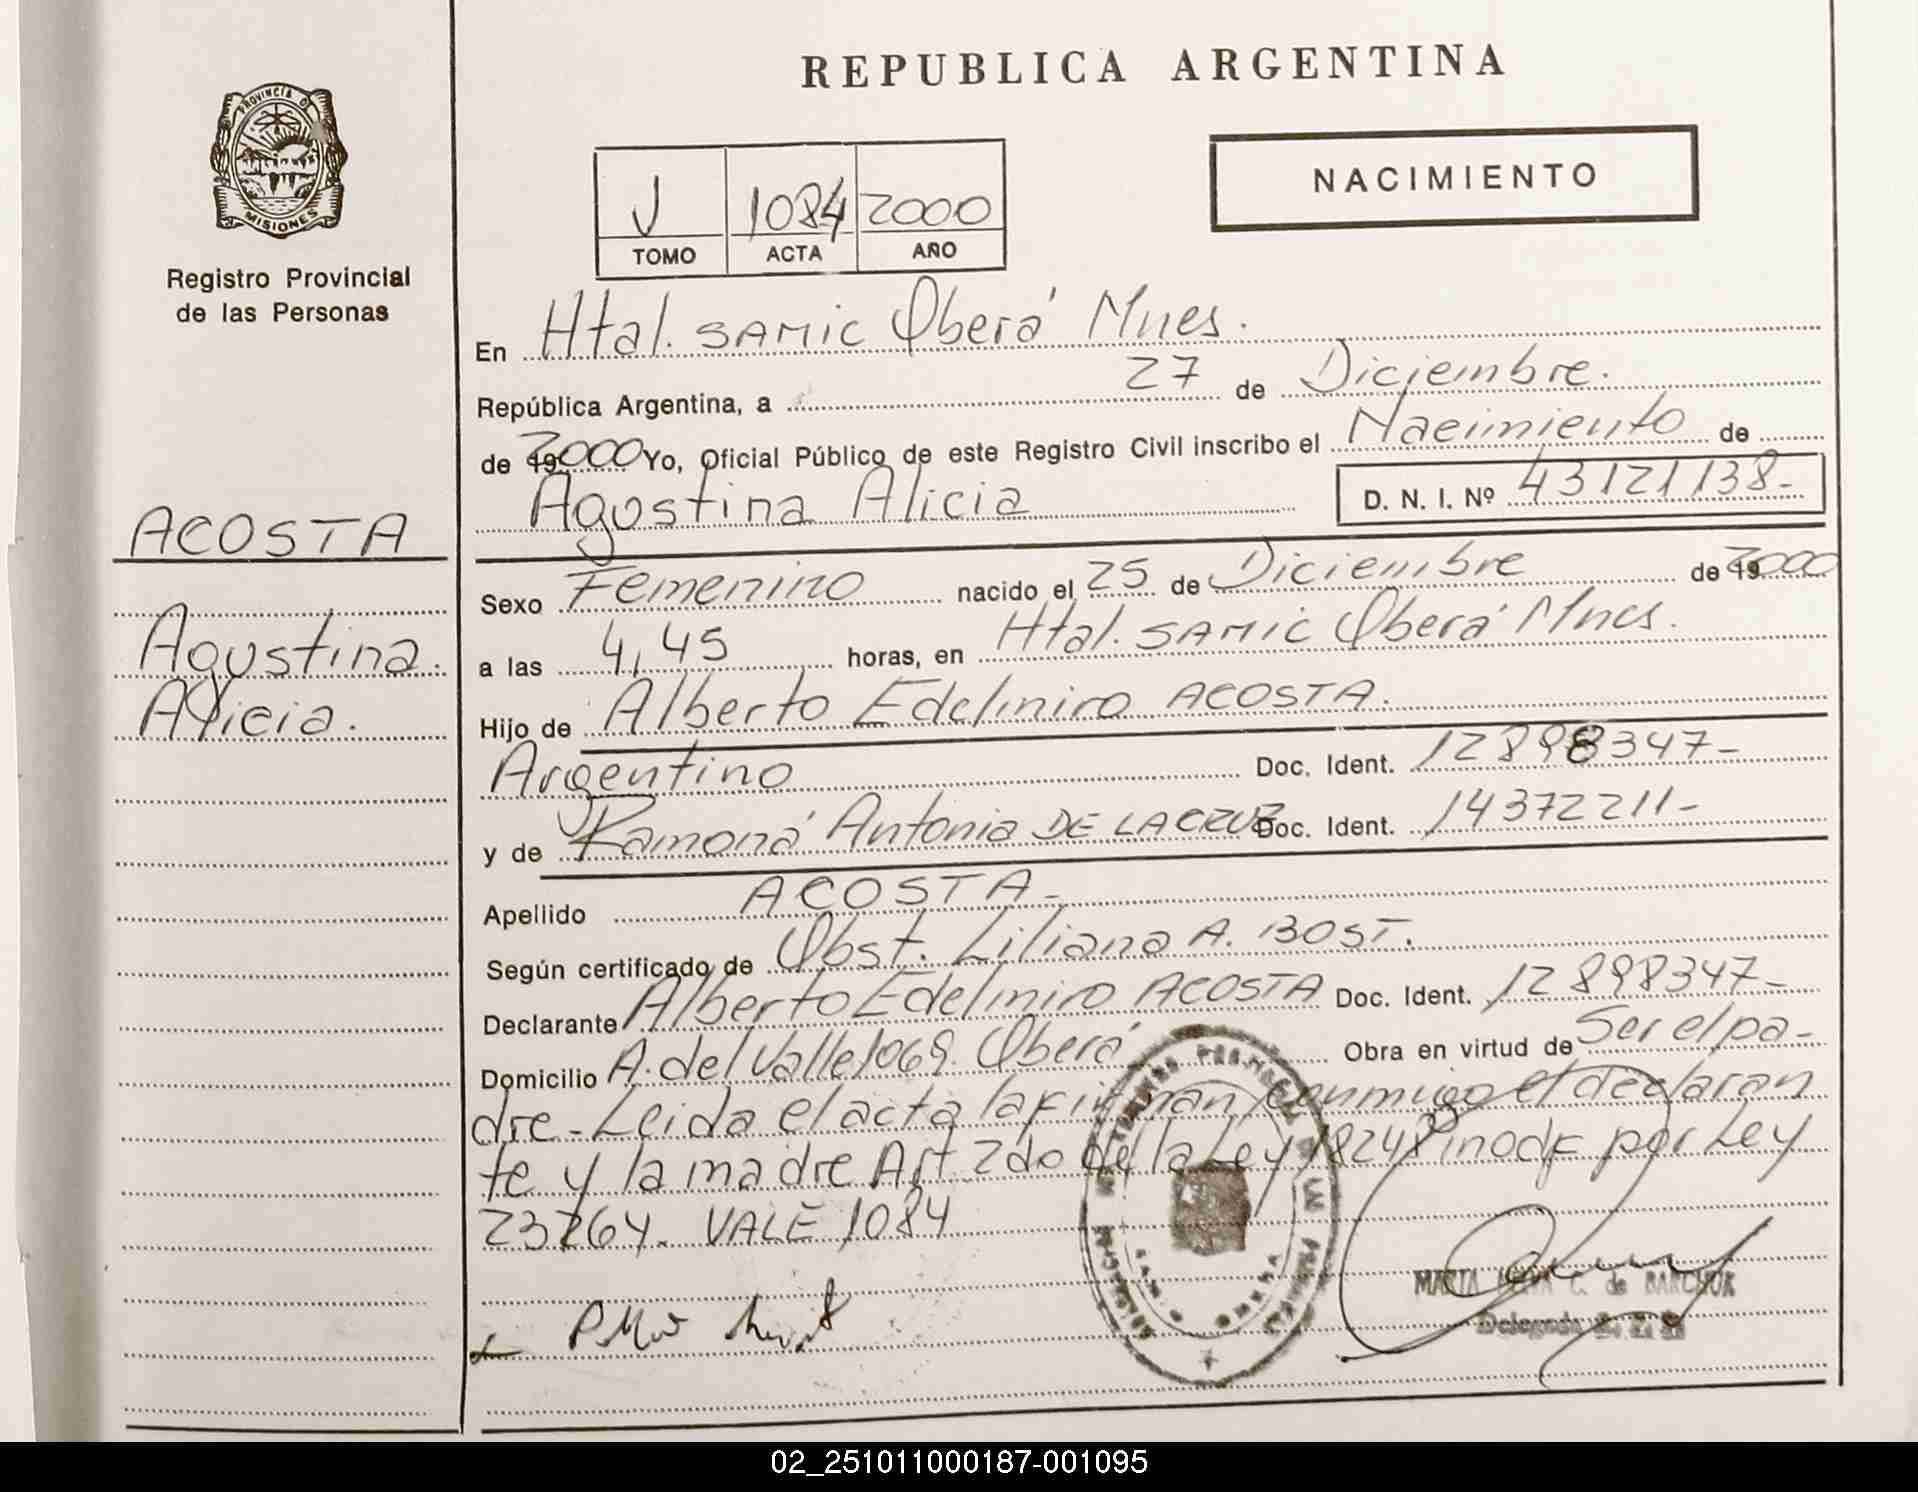 REPUBLICA ARGENTINA
PROVINCIA D
MISIONES
Registro Provincial
de las Personas
NACIMIENTO
J 1084 2000
TOMO ACTA AÑO
En Htal. SAMIC Oberá Mnes.
República Argentina, a 27 de Diciembre.
de 2000 Yo, Oficial Público de este Registro Civil inscribo el Nacimiento de
Agostina Alicia D. N. I. Nº 43121138-
ACOSTA
Agustina.
Alicia.
Sexo Femenino nacido el 25 de Diciembre de 2000
a las 4,45 horas, en Htal. SAMIC Oberá Mnes.
Hijo de Alberto Edelmiro ACOSTA.
Argentino Doc. Ident. 12898347-
y de Ramona Antonia DE LA CRUZ Doc. Ident. 14372211-
Apellido ACOSTA-
Según certificado de Obst. Liliana A. BOST.
Declarante Alberto Edelmiro ACOSTA Doc. Ident. 12898347-
Domicilio A. del Valle 1069. Oberá Obra en virtud de Ser el pa-
dre- Leida el acta la firman conmigo el declaran
te y la madre Art 2do de la Ley 18248 modf por Ley
23264. VALE 1084
MARIA C. de
Delegada
02_251011000187-001095